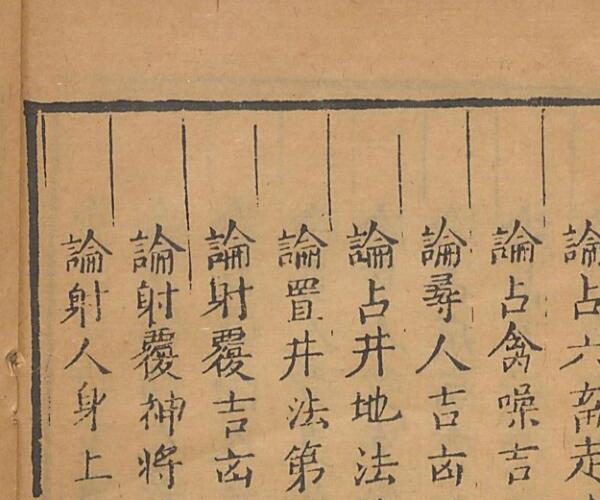 論占六畜走
論占禽噪吉
論尋人吉凶
論占井地法
論置井法第
論射覆吉凶
論射覆神将
論射人身上